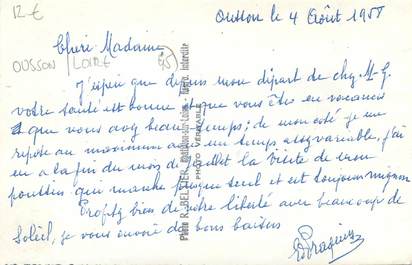 12€
Ousson le 4 Août 1958
OUSSON / LOIRE (45)
Chère Madame
J'espère que depuis mon départ de chez M-G.
votre santé est bonne et que vous êtes en vacances
que vous avez beau temps; de mon côté je me
repose au maximum avec un temps assez variable, j'ai
eu à la fin du mois de Juillet la visite de mon
poussin qui marche presque seul et est toujours mignon
Profitez bien de votre liberté avec beaucoup de
Soleil, je vous envoie de bons baisers
Photo R. BELZIER, Loire
PHOTO VÉRITABLE